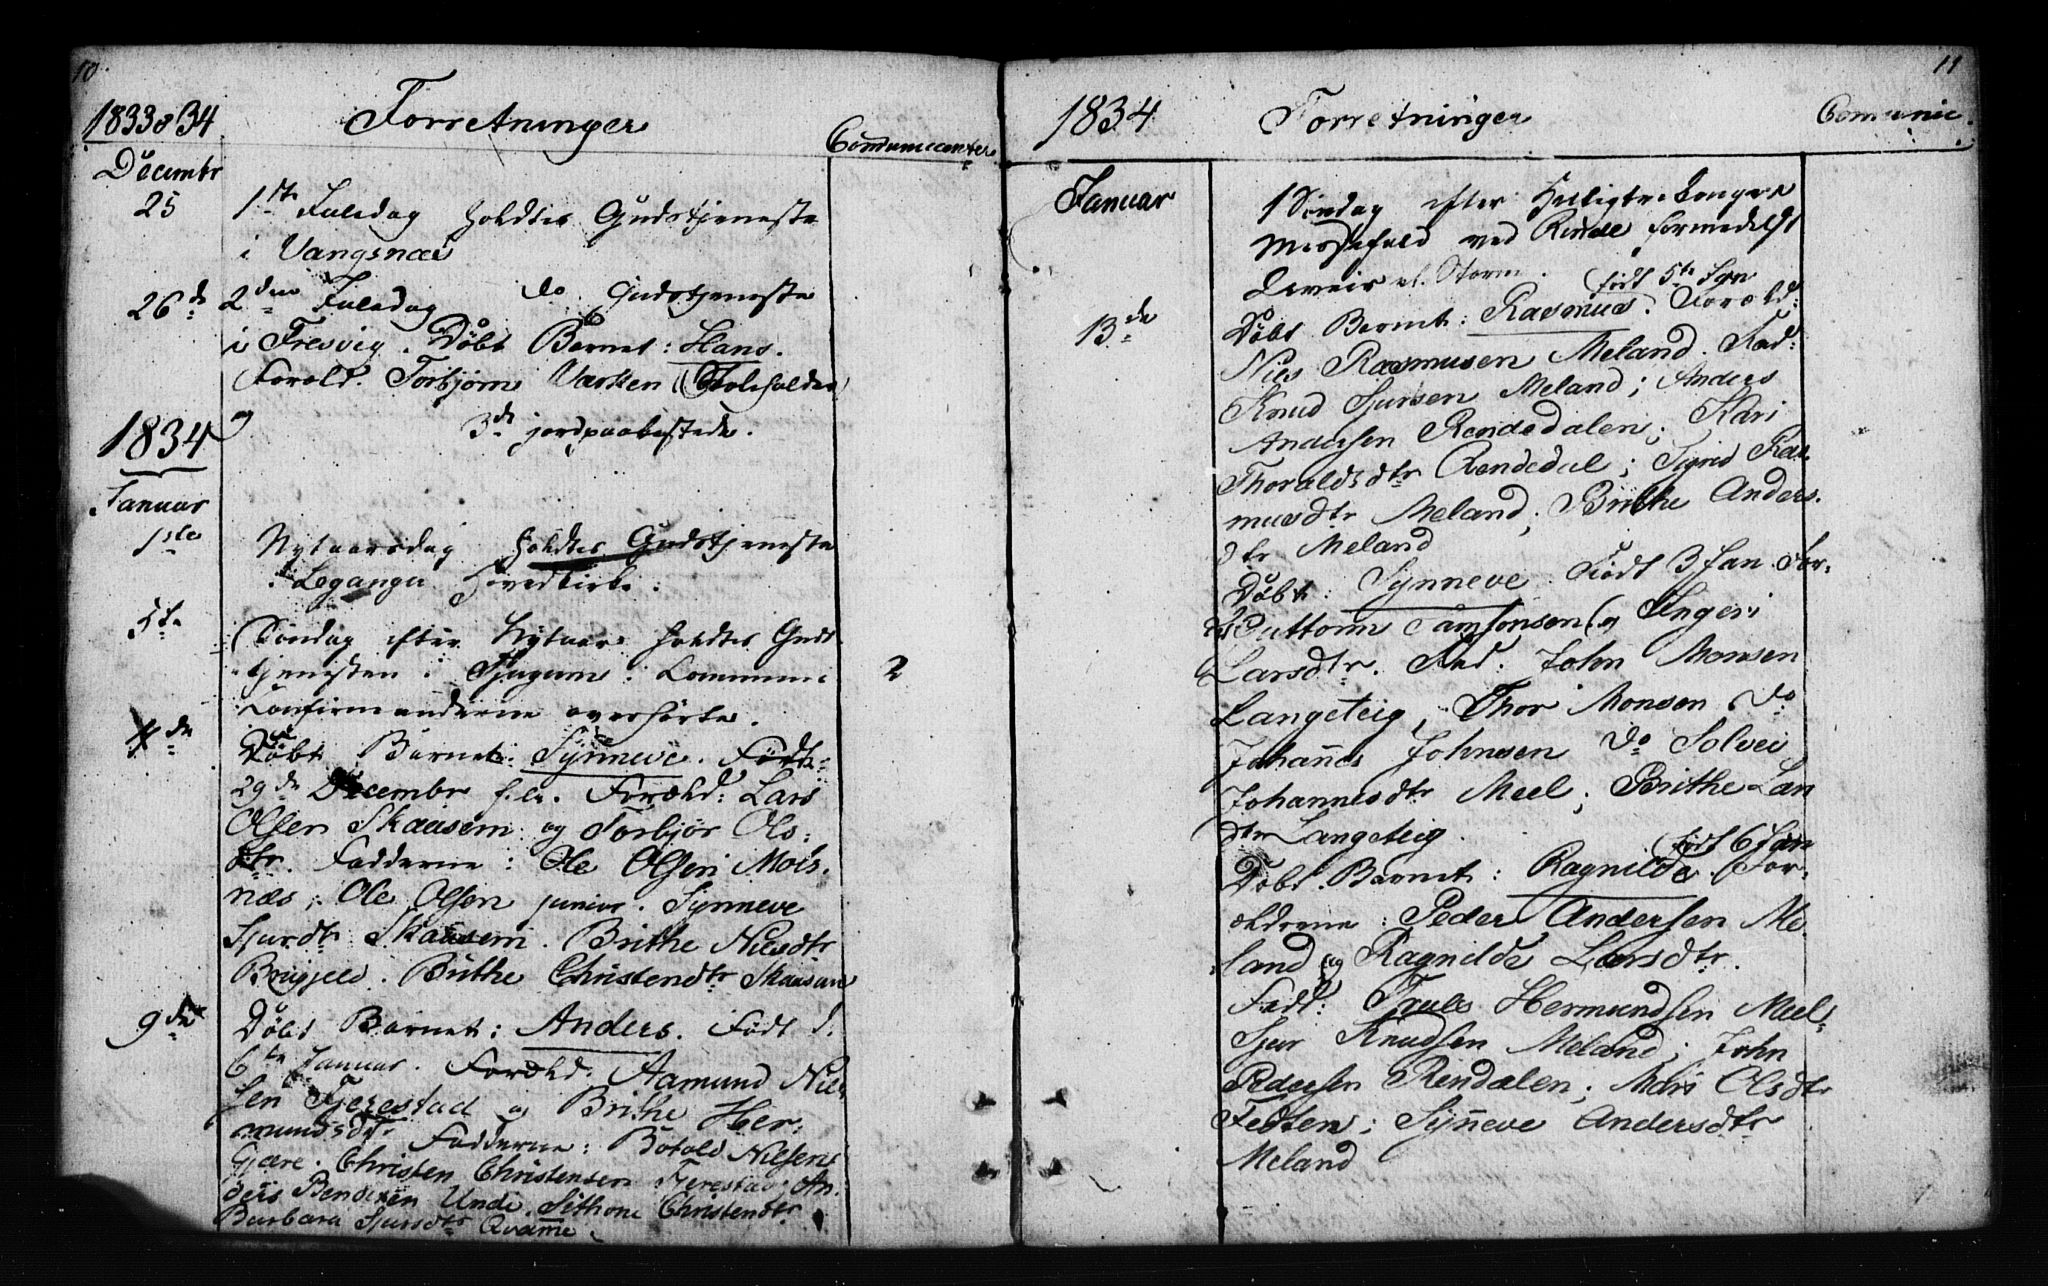 10
1833 & 34 Forretninger
Communicenter
Decembr
25 1ste Juledag holdtes Gudstjeneste
i Vangsnæs
26de 2den Juledag do Gudstjeneste
i Fresvig. Døbt Barnet: Hans.
Foræld. Torbjørn Varken
og
3de jordpaakastede.
1834
Januar
1ste Nytaarsdag holdtes Gudstjeneste
i Leganger Hovedkirke.
5te Søndag efter Nytaar holdtes Guds
tjenesten i Tjugum. 2
Confirmanderne overhørte.
de Døbt Barnet: Synneve. Født
29de Decembr f. A. Foræld: Lars
Olsen Skaasem og Torbjør Ols:
dtr. Fadderne: Ole Olsen Mols-
næs; Ole Olsen junior. Synneve
Sjurdtr Skaasem. Brithe Nielsdtr
Brithe Christendtr Skaasem
9de Døbt Barnet: Anders. Født d.
6te Januar. Foræld: Aamund Niel
sen Tjerestad og Brithe Her:
mundsdtr Fadderne: Botold Nilsen
Gjære. Christen Christensen Tjerestad; An-
ders Bendixen Unde. Sithone Christendtr
Barbara Sjursdtr Qvamme
11
1834 Forretninger Comunic.
Januar 1 Søndag efter Helligtrekonger
Messefald ved Rinde formedelst
Uveir og Storm.
født 5te Jan
13de Døbt Barnet: Rasmus. Foræld:
Niels Rasmusen Meland. Fad:
Knud Sjursen Meland; Anders
Andersen Rendedalen; Kari
Thoraldsdtr Rendedal; Sigrid Ras
musdtr Meland; Brithe Anders.
dtr Meland
Døbt: Synneve. Født 3 Jan. For-
Guttorm Samsonsen og Ingeri
Larsdtr. Fad. John Monsen
Langeteig, Thor Monsen do
Johannes Johnsen do Solvei
Johannesdtr Meel; Brithe Lars
dtr Langeteig.
født 6 Jan
Døbt Barnet: Ragnilde. For-
ældrene: Peder Andersen Me-
land og Ragnilde Larsdtr.
Fadd: Hermundsen Meel
Sjur Knudsen Meland; John
Pedersen Rendalen; Olsdtr
Fedten; Synneve Andersdtr
Meland